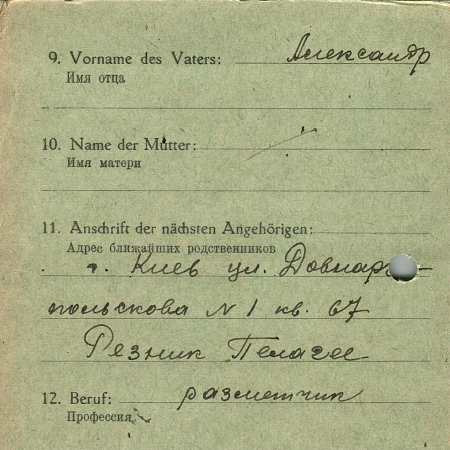 9. Vorname des Vaters: Александр
Имя отца
10. Name der Mutter:
Имя матери
11. Anschrift der nächsten Angehörigen:
Адрес ближайших родственников
г. Киев ул. Довнар-
польскова N 1 кв. 67
Резник Пелагее
12. Beruf: разметчик
Профессия